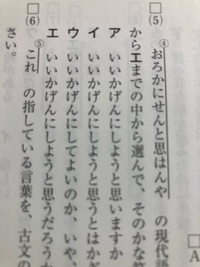 □(5) ④おろかにせんと思はんや の現代語
からエまでの中から選んで、そのかな符
ア いいかげんにしようと思いますか
イ いいかげんにしようと思うとはかぎ
ウ いいかげんにしてよいのか、いや、
エ いいかげんにしようと思うだろうか
□(6) ⑤これ の指している言葉を、古文の
さい。
□A